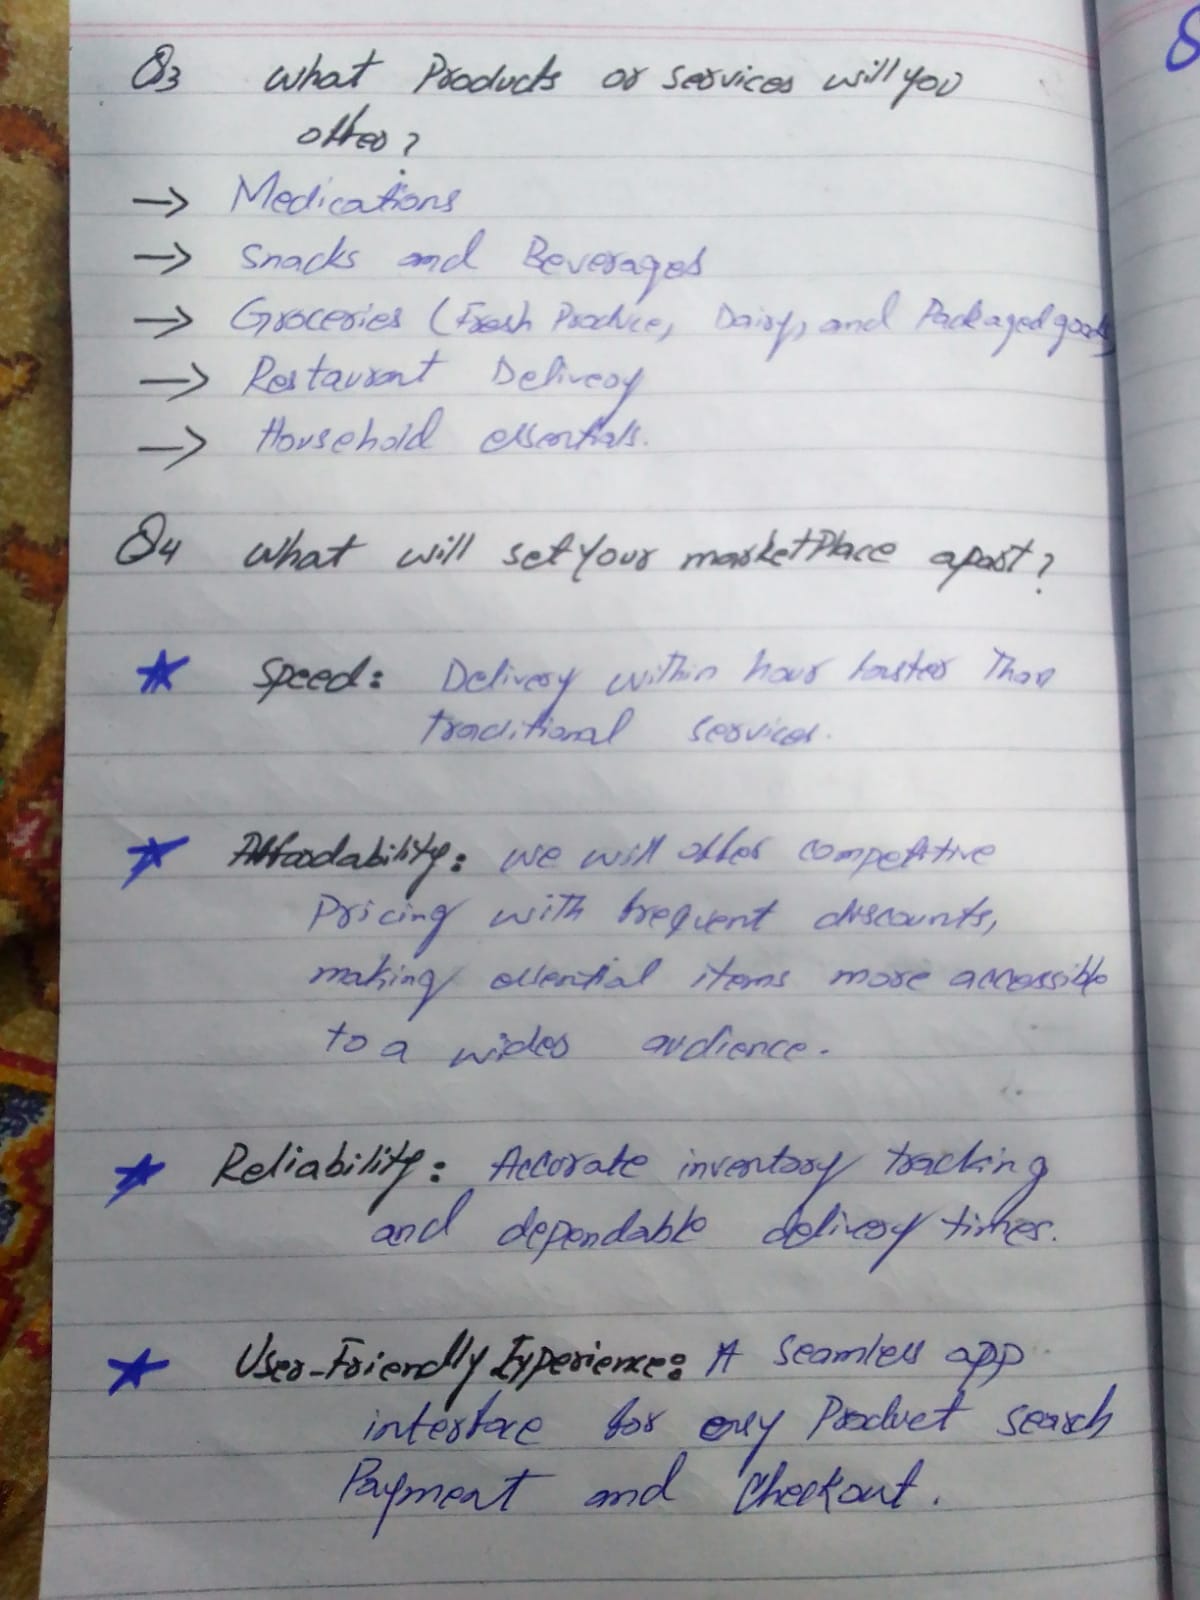 Q3 What Products or services will you
offer?
→ Medications
→ Snacks and Beverages
→ Groceries (Fresh Produce, Dairy, and Packaged goods)
→ Restaurant Delivery
→ Household essentials.
Q4 What will set your marketPlace apart?
★ Speed: Delivery within hour faster Than
traditional services.
★ Affordability: we will offer competitive
Pricing with frequent discounts,
making essential items more accessible
to a wider audience.
★ Reliability: Accurate inventory tracking
and dependable delivery times.
★ User-Friendly Experience: A seamless app
interface for easy Product search
Payment and Checkout.